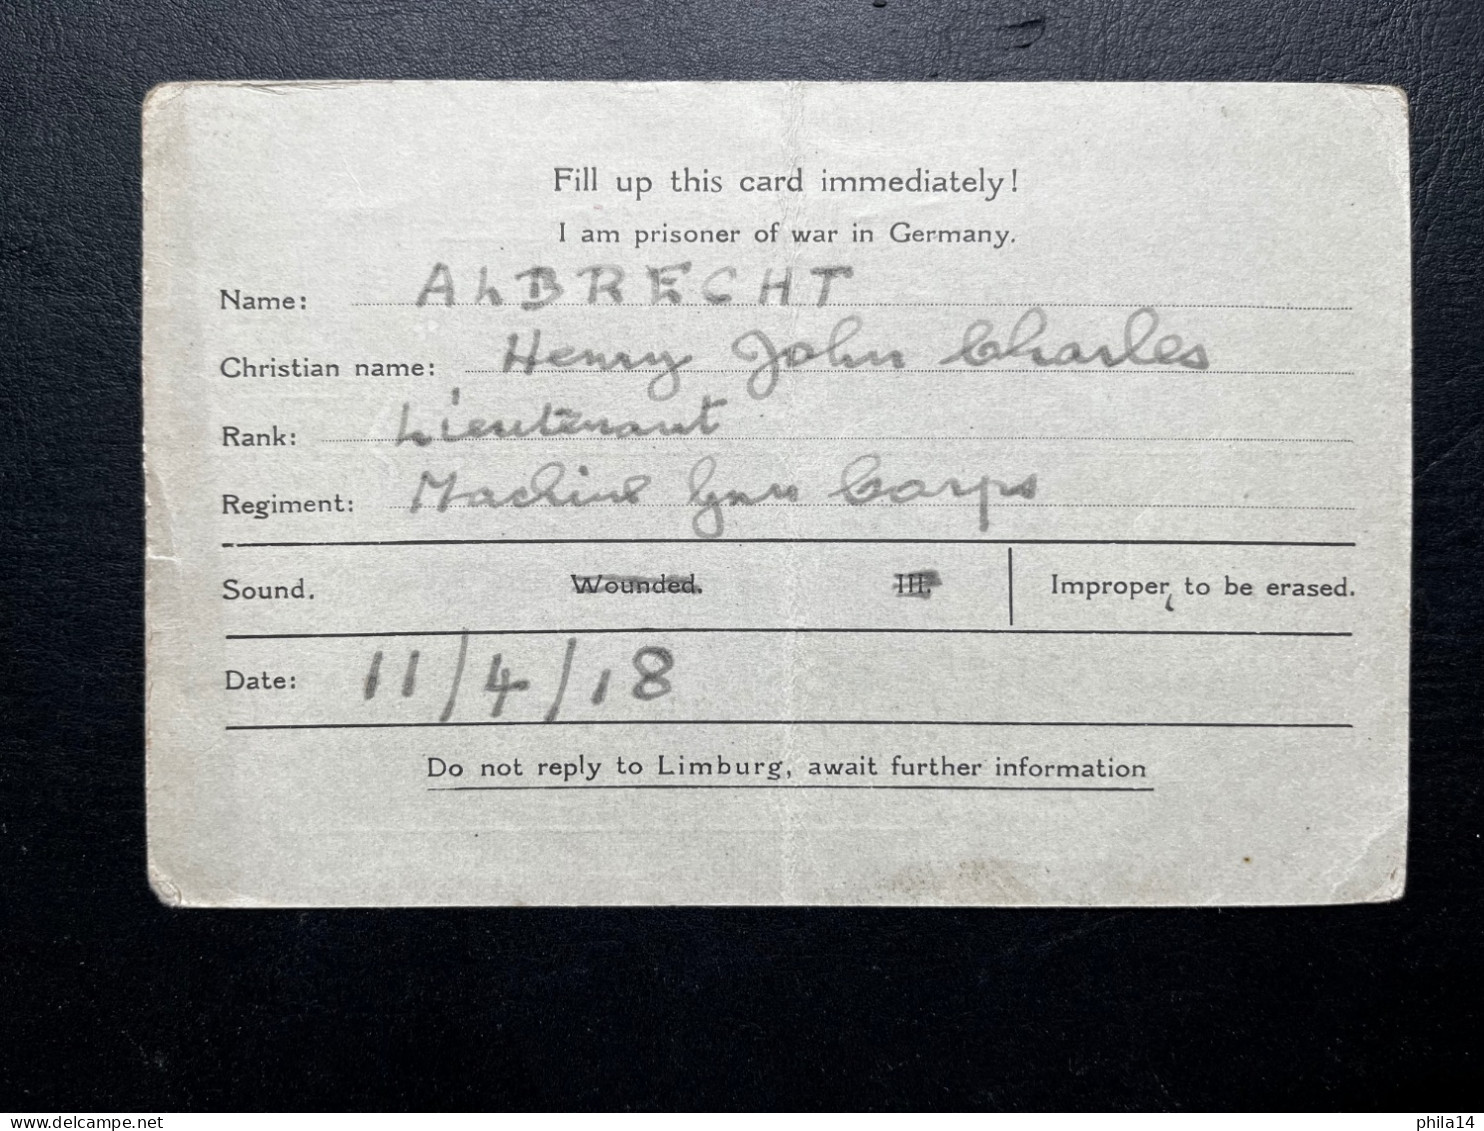 Fill up this card immediately!
I am prisoner of war in Germany.
Name: ALBRECHT
Christian name: Henry John Charles
Rank: Lieutenant
Regiment: Machine Gun Corps
Sound. Wounded. Ill. Improper, to be erased.
Date: 11/4/18
Do not reply to Limburg, await further information
www.delcampe.net
phila14